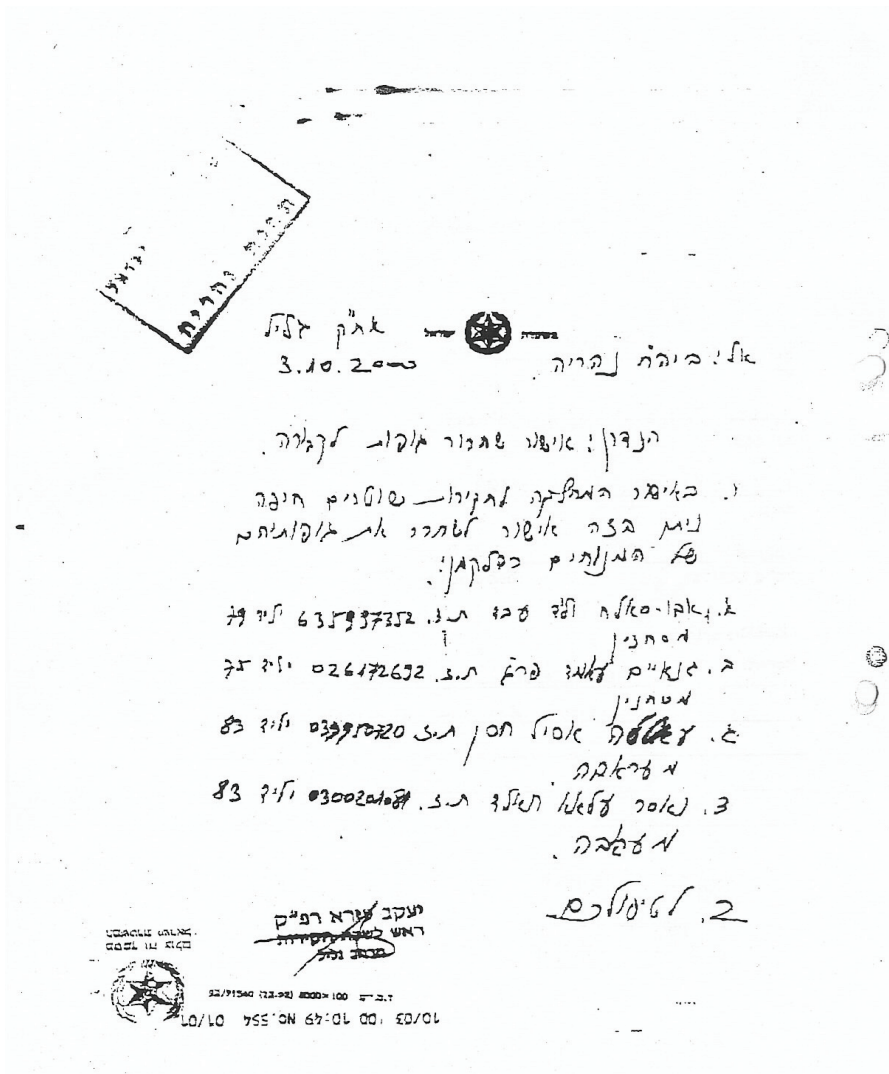 תחנת נהריה
ישראל
משטרת ישראל
אח"ק גליל
3.10.2000
אל: ביה"ח נהריה.
הנדון: אישור שחרור גופות לקבורה.
1. באישור המחלקה לחקירות שוטרים חיפה
ניתן בזה אישור לשחרר את גופותיהם
של המנוחים כדלקמן:
א. אבו-סאלח וליד עבד ת.ז. 635937352 יליד 79
מסחנין
ב. גנאיים עמאד פרג ת.ז. 026172692 יליד 75
מסחנין
ג. אסיל חסן ת.ז. יליד 83
מעראבה.
ד. נאסר עלאא ח'אלד ת.ז. יליד 83
מעראבה.
2. לטיפולכם
יעקב עזרא רפ"ק
ראש לשכת חקירות
מרחב גליל
10/03 '00 10:49 NO.554 01/01